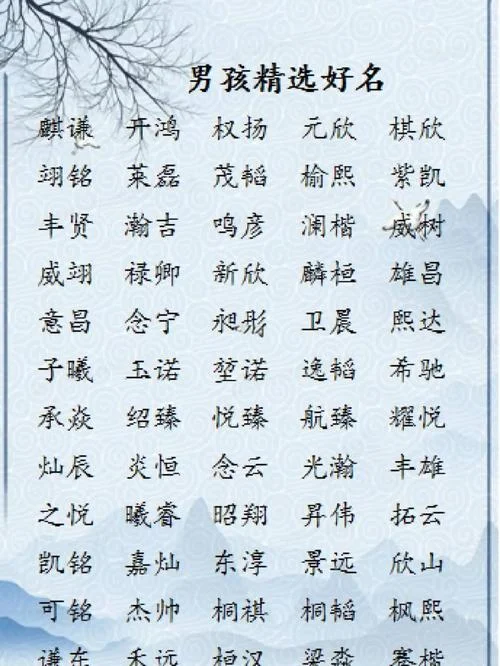 男孩精选好名
麒谦 开鸿 权扬 元欣 棋欣
翊铭 莱磊 茂韬 榆熙 紫凯
丰贤 瀚吉 鸣彦 澜楷 威树
威翊 禄卿 新欣 麟桓 雄昌
意昌 念宁 昶彤 卫晨 熙达
子曦 玉诺 堃诺 逸韬 希驰
承焱 绍臻 悦臻 航臻 耀悦
灿辰 炎恒 念云 光瀚 丰雄
之悦 曦睿 昭翔 昇伟 拓云
凯铭 嘉灿 东淳 景远 欣山
可铭 杰帅 桐祺 桐韬 枫熙
谦东 禾远 桓汉 梁淼 骞楷